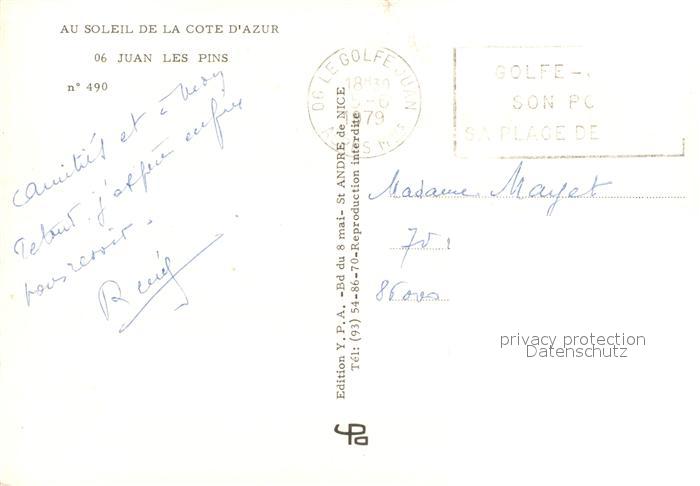 AU SOLEIL DE LA COTE D'AZUR
06 JUAN LES PINS
n° 490
amitiés et à mon
retour j'espère enfin
vous revoir.
René
Edition Y.P.A. -Bd du 8 mai- St ANDRE de NICE
Tél: (93) 54-86-70-Reproduction interdite
06 LE GOLFE JUAN
18H30
-6
1979
GOLFE-
SON PO
SA PLAGE DE
Madame Mayet
86000
privacy protection
Datenschutz